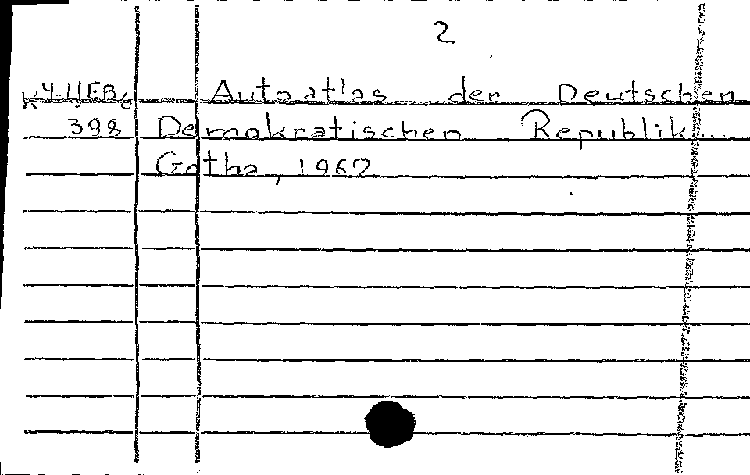 2
Autoatlas der Deutschen
398 Demokratischen Republik...
Gotha, 1962